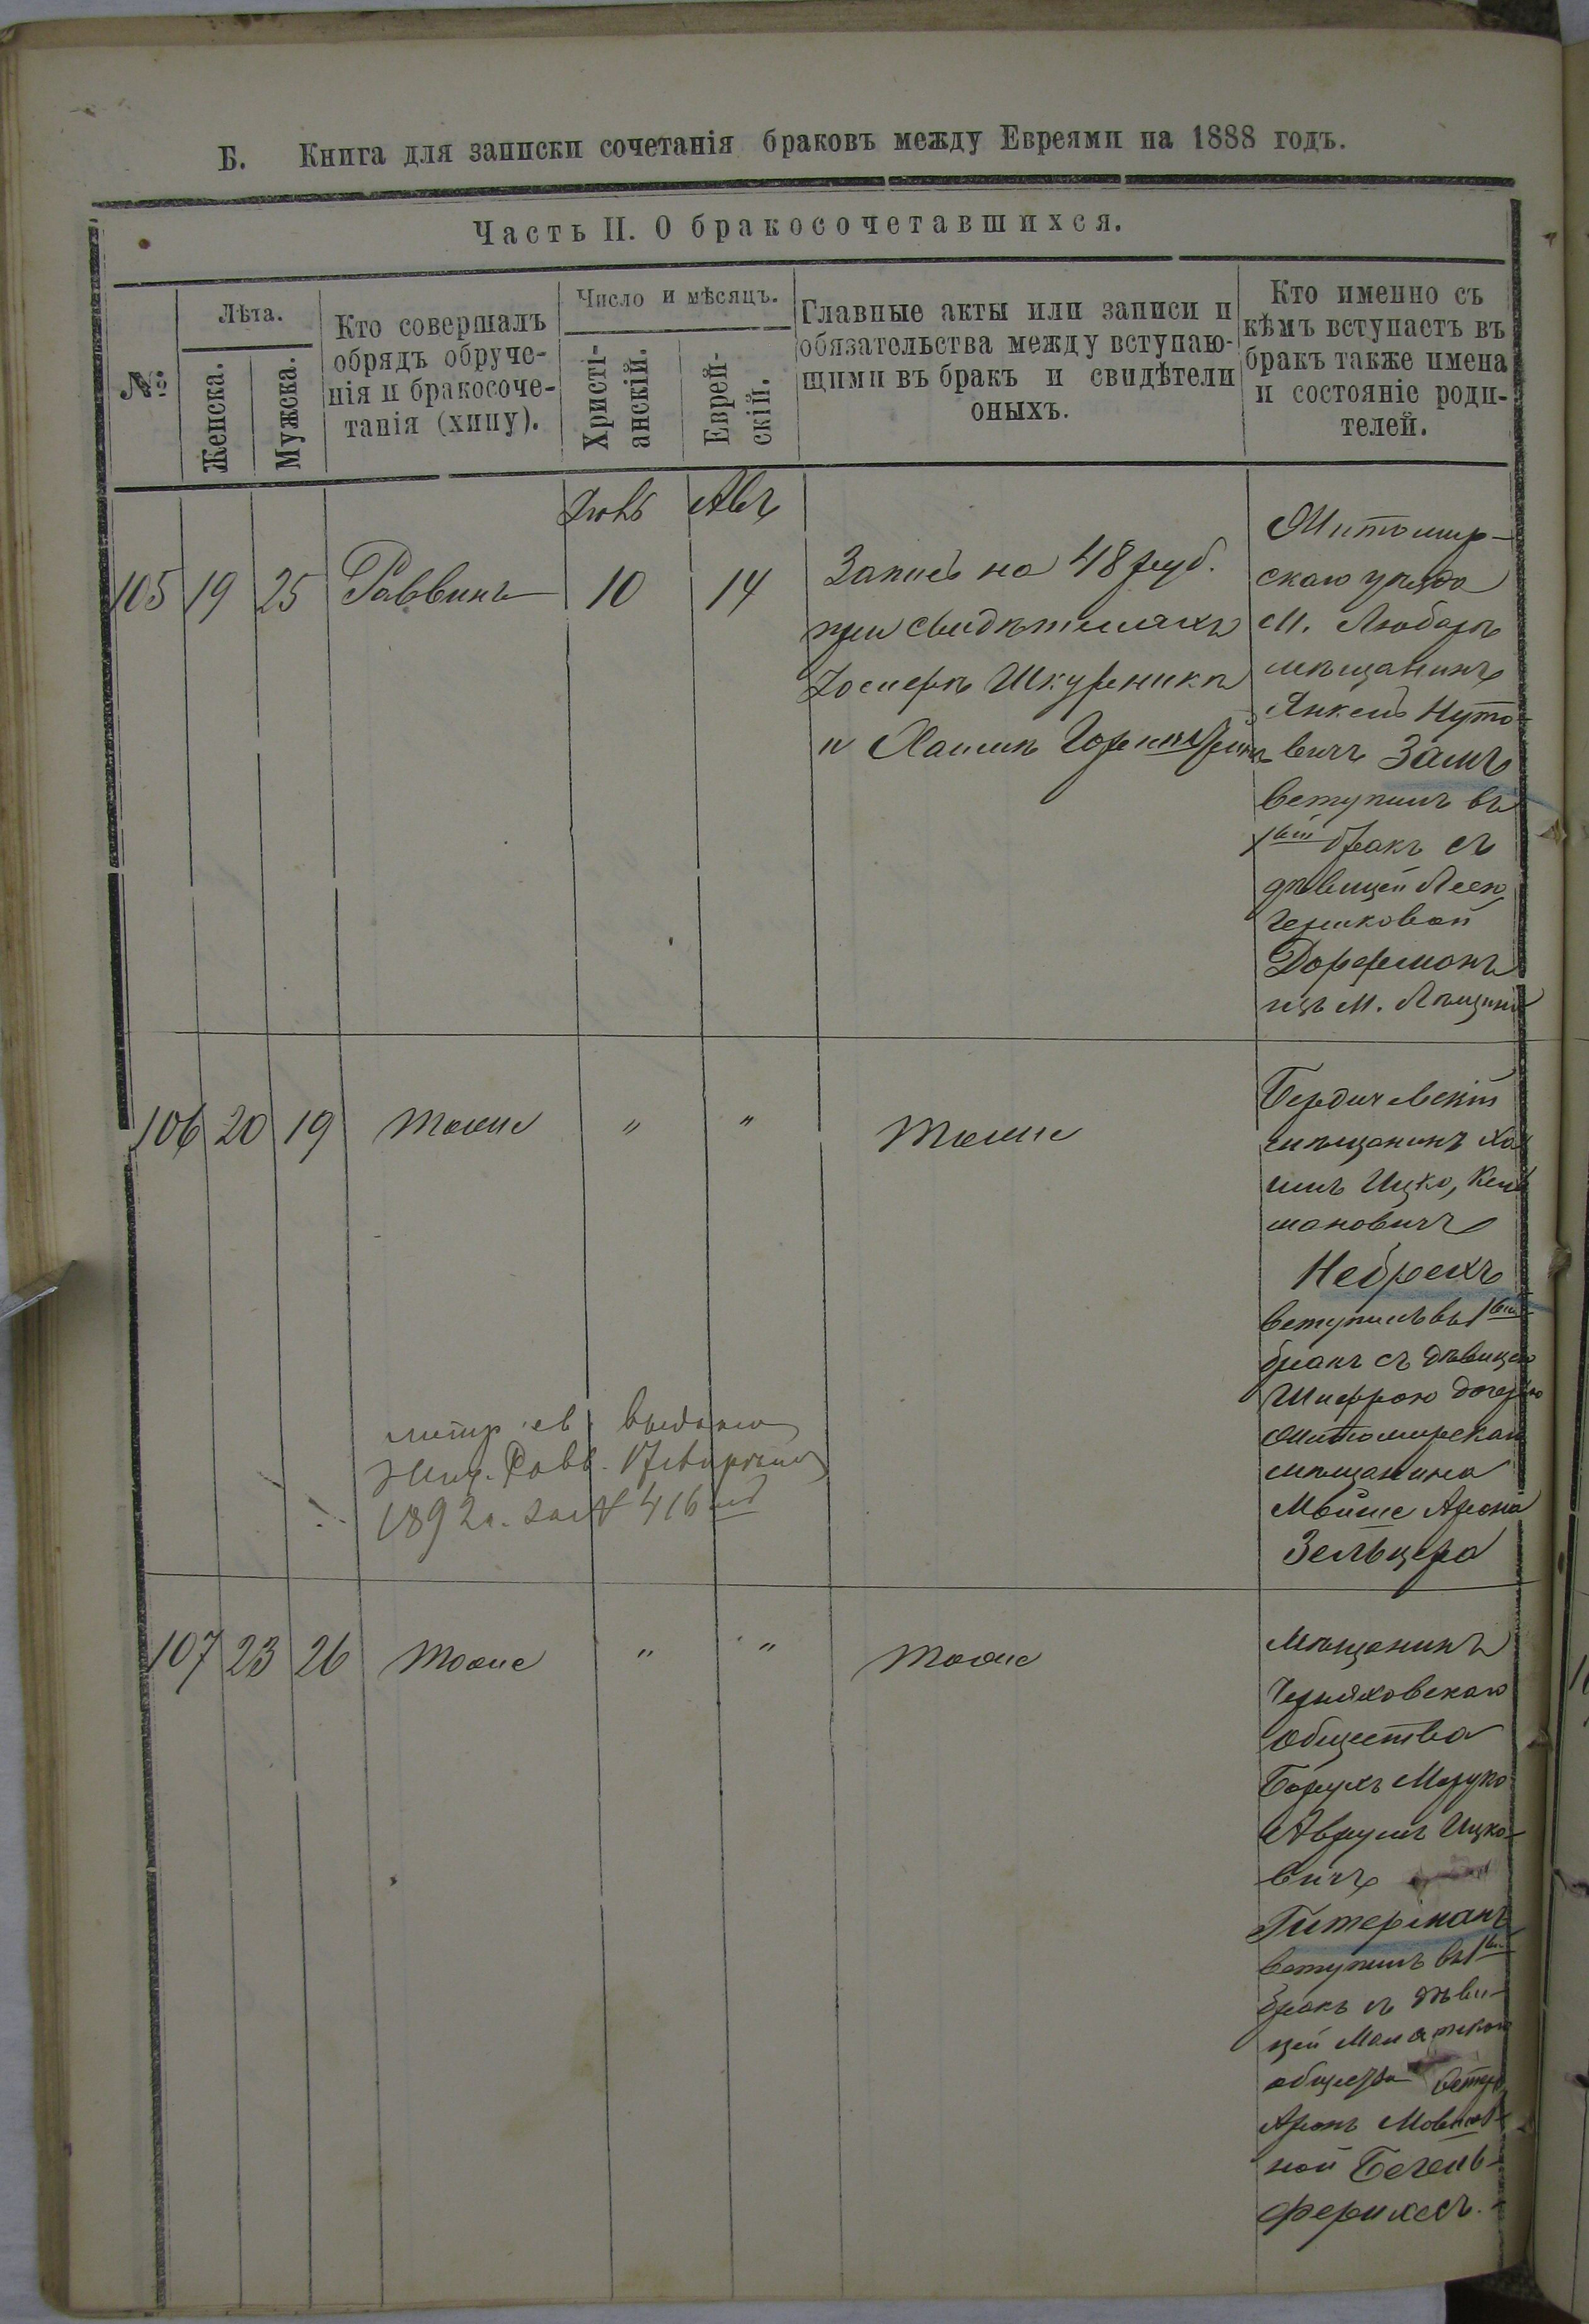 Б. Книга для записки сочетанія браковъ между Евреями на 1888 годъ.
Часть II. О бракосочетавшихся.
№
Лѣта.
Женска.
Мужска.
Кто совершалъ
обрядъ обруче-
нія и бракосоче-
танія (хипу).
Число и мѣсяцъ.
Христі-
анскій.
Еврей-
скій.
Главные акты или записи и
обязательства между вступаю-
щими въ бракъ и свидѣтели
оныхъ.
Кто именно съ
кѣмъ вступаетъ въ
бракъ также имена
и состояніе роди-
телей.
Авъ
105 19 25 Раввинъ 10 14
Запись на 48 руб.
при свидѣтеляхъ
Іосифъ Шкурникъ
и Хаимъ
Житомир-
скаго уѣзда
М. Любаръ
мѣщанинъ
Янкель Нуто-
вичъ Замъ
вступилъ въ
1вый бракъ съ
дѣвицей Леею
Гершковой
Дорфманъ
изъ М.
106 20 19 тоже " " тоже
Бердичевскій
мѣщанинъ Ха
имъ Ицко, Кель
мановичъ
Небрехъ
вступилъ въ 1вый
бракъ съ дѣвицею
Шифрою дочерью
Житомирскаго
мѣщанина
Мойше Арона
Зельцера
метр. св. выдано
Жит. Равв. 17
1892 г. за № 416
107 23 26 тоже " " тоже
Мѣщанинъ
Черняховскаго
общества
Борухъ
Аврумъ Ицко-
вичъ
Гитерманъ
вступилъ въ 1вый
бракъ съ дѣви-
цей
общества
Аронъ
ной